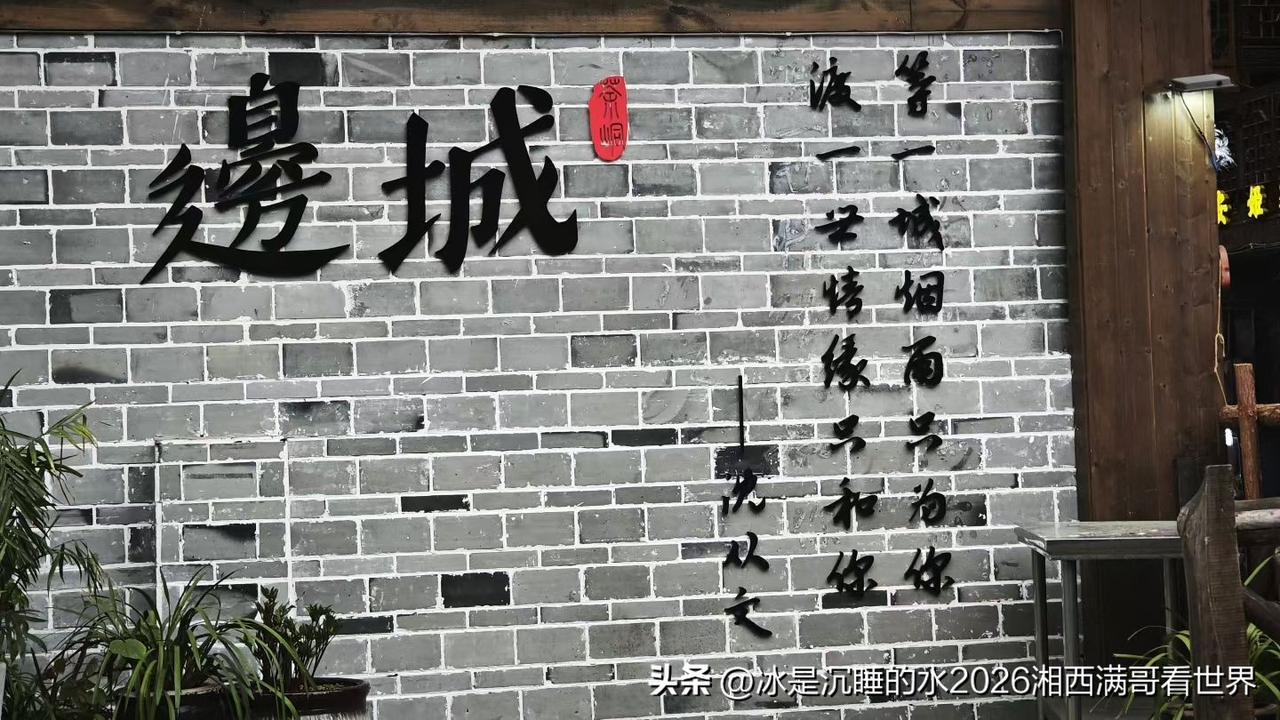 邊城
茶峒
等一城烟雨只为你
渡一世情缘只和你
——沈从文
头条 @冰是沉睡的水2026湘西满哥看世界